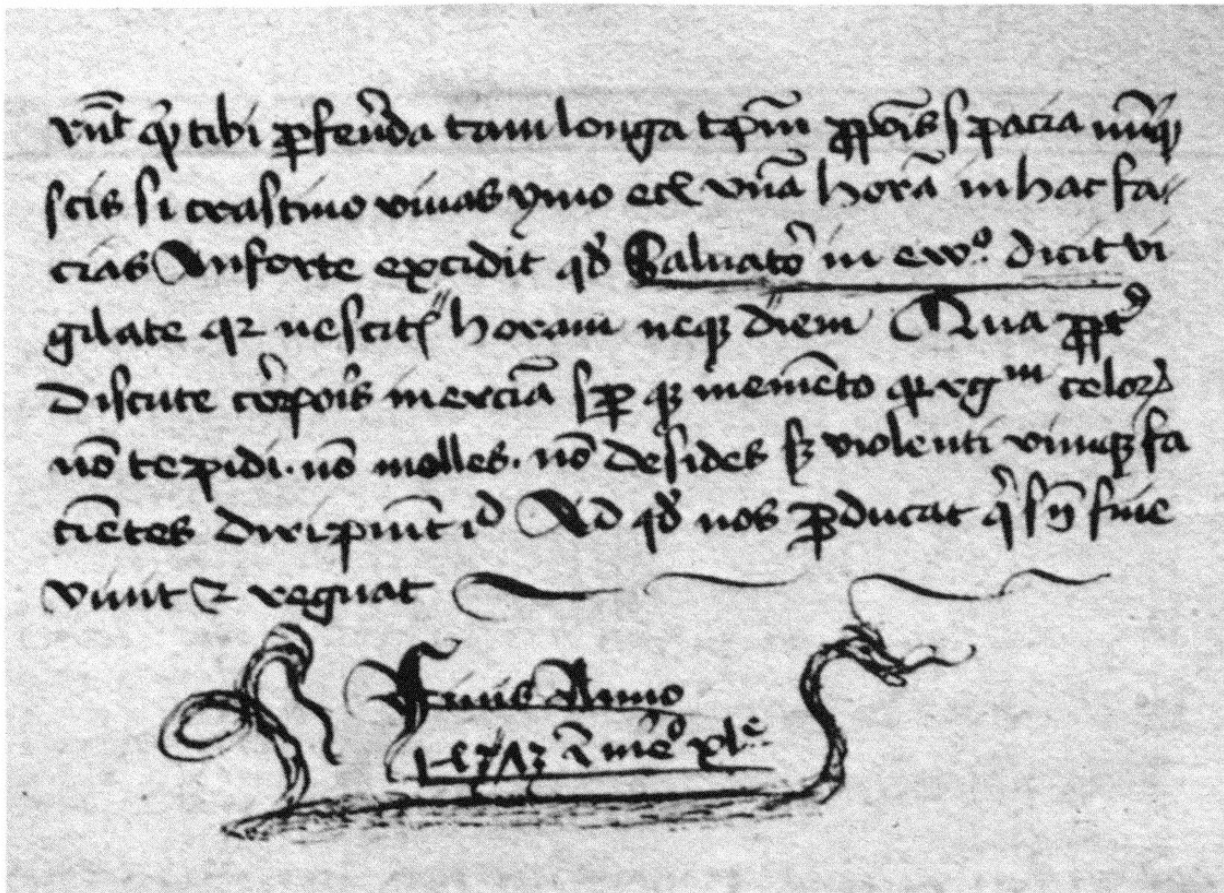 rūt tibi ꝑferēda tam longa tpm̄ ꝓpōis spacia nūqꝫ
scis si crastino viuas ymo etꝫ vnā horā in hac fa-
cias An forte excidit qđ Saluator̉ in ewº. dicit vi
gilate qꝛ nescitꝭ horam neqꝫ diem Qua ꝓpt̉
discute cor̉pois inerciā sꝑ qꝫ memēto regᵐ celoꝝ
nō tepidi. nō molles. nō desides sꝫ violenti vimqꝫ fa
ciētes diripiūt id Ad qđ nos ꝑducat q̉ sn̄ fine
viuit ⁊ regnat
Finis Anno